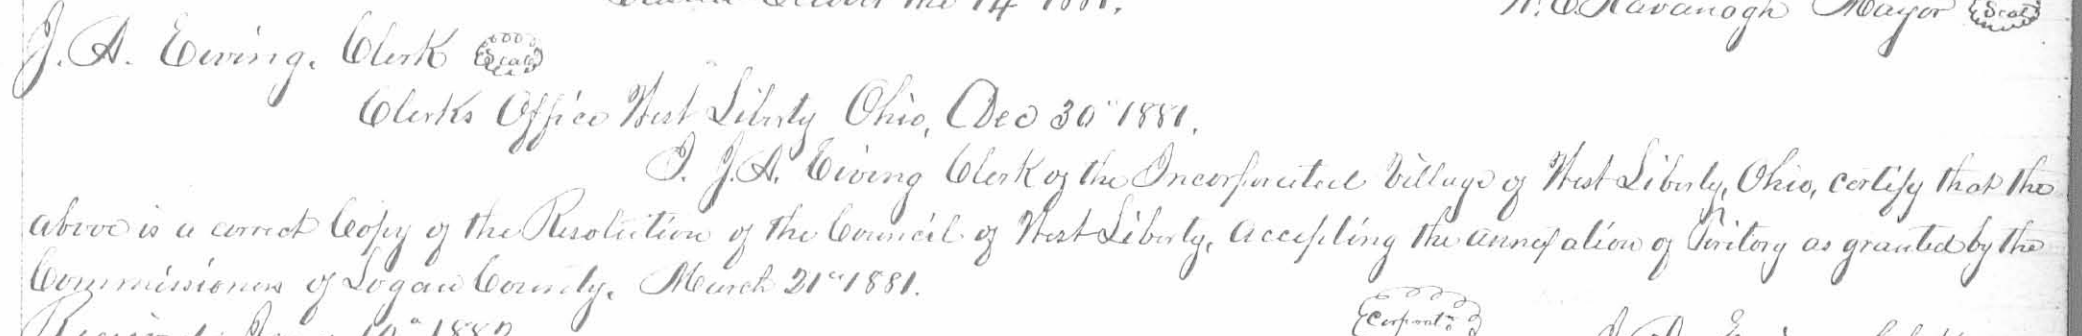 October the 14 1881. W. C. Kavanagh Mayor Seal
J. A. Ewing. Clerk Seal
Clerks Office West Liberty Ohio, Dec 30" 1881.
I. J. A. Ewing Clerk of the Incorporated Village of West Liberty, Ohio, certify that the
above is a correct Copy of the Resolution of the Council of West Liberty, accepting the annexation of Teritory as granted by the
Commissioners of Logan County. March 21st 1881.
Corporate